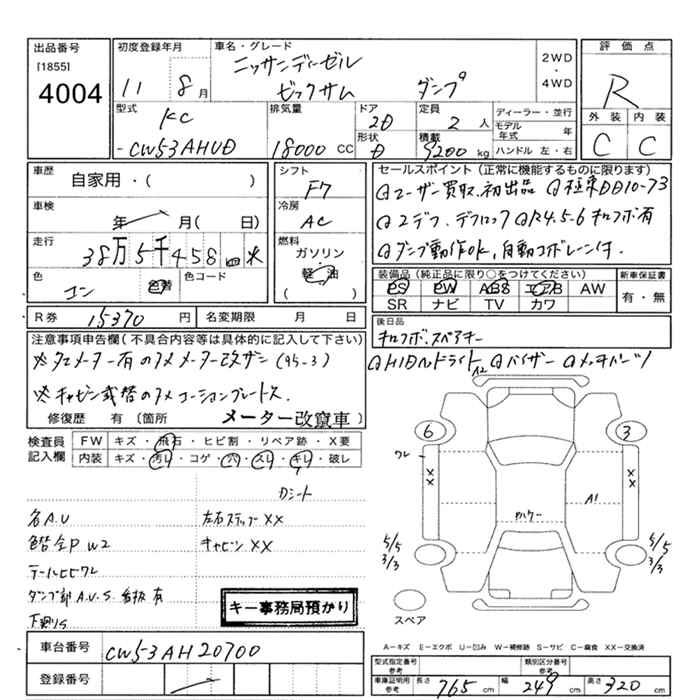 出品番号
[1855]
4004
初度登録年月
11 8月
車名・グレード
ニッサンディーゼル
ビックサム ダンプ
2WD
・
4WD
評価点
R
外装 内装
C C
型式
KC
-CW53AHUD
排気量
18000 CC
ドア
2D
形状
D
定員
2 人
積載
9200 kg
ディーラー・並行
モデル年式 年
ハンドル 左・右
車歴
自家用・( )
車検
年 月( 日)
走行
38万5千458
色
コン 色替
色コード
シフト
F7
冷房
AC
燃料
ガソリン
軽油
( )
セールスポイント(正常に機能するものに限ります)
ユーザー買取、初出品 極東DD10-73
2デフ、デフロック R4.5-6 キロクボ有
ダンプ動作OK、自動コボレーン付.
装備品(純正品に限り○をつけてください)
PS PW ABS エアB AW
SR ナビ TV カワ
新車保証書
有・無
R券 15370 円
名変期限 月 日
後日品
キロクボ、スペアキー
注意事項申告欄(不具合内容等は具体的に記入して下さい)
※タコメーター有の為メーター改ザン(95-3)
※キャビン載替の為コーションプレートス.
修復歴 有 (箇所 メーター改竄車)
HIDヘッドライト バイザー メッキパーツ
検査員
記入欄
FW キズ・飛石・ヒビ割・リペア跡・X要
内装 キズ・汚レ・コゲ・穴・スレ・キレ・破レ
カシート
各A.U
色替全P W2
テールヒビワレ
ダンプ部A.U.S 看板有
下廻リS
左右ステップXX
キャビンXX
キー事務局預かり
6
3
ワレ
XX
XX
A2
A1
5/5
3/3
5/5
3/3
スペア
車台番号 CW53AH20700
登録番号
A=キズ E=エクボ U=凹み W=補修跡 S=サビ C=腐食 XX=交換済
型式指定番号
参考
類別区分番号
参考
車庫証明用
参考
長さ 765 cm 幅 249 cm 高さ 320 cm